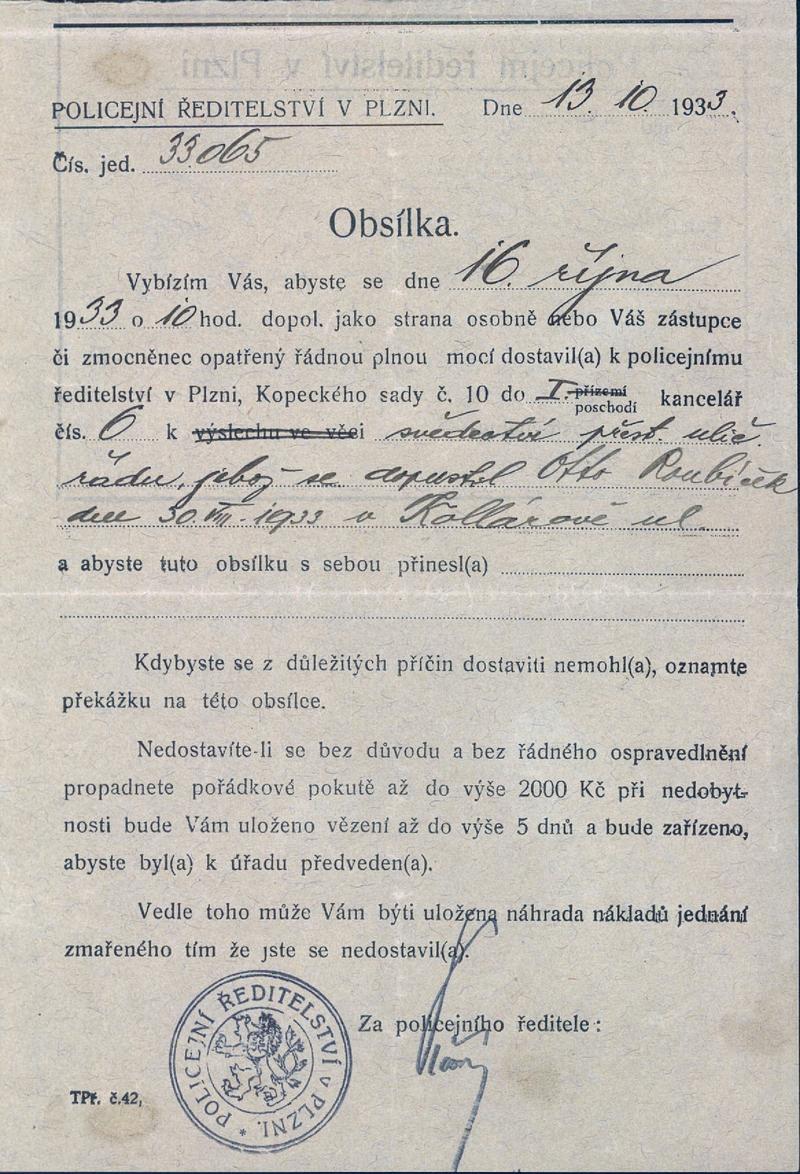 POLICEJNÍ ŘEDITELSTVÍ V PLZNI. Dne 13. 10. 1933.
Čís. jed. 33065
Obsílka.
Vybízím Vás, abyste se dne 16. října
1933 o 10 hod. dopol. jako strana osobně nebo Váš zástupce
či zmocněnec opatřený řádnou plnou mocí dostavil(a) k policejnímu
ředitelství v Plzni, Kopeckého sady č. 10 do I. přízemí poschodí kancelář
čís. 6 k výslechu ve věci svědectví přest. ulič.
řádu, jehož se dopustil Otto Roubíček
dne 30. VIII. 1933 v Kollárově ul.
a abyste tuto obsílku s sebou přinesl(a)
Kdybyste se z důležitých příčin dostaviti nemohl(a), oznamte
překážku na této obsílce.
Nedostavíte-li se bez důvodu a bez řádného ospravedlnění
propadnete pořádkové pokutě až do výše 2000 Kč při nedobyt-
nosti bude Vám uloženo vězení až do výše 5 dnů a bude zařízeno,
abyste byl(a) k úřadu předveden(a).
Vedle toho může Vám býti uložena náhrada nákladů jednání
zmařeného tím že jste se nedostavil(a).
Za policejního ředitele:
POLICEJNÍ ŘEDITELSTVÍ v PLZNI. *
TPř. č.42,